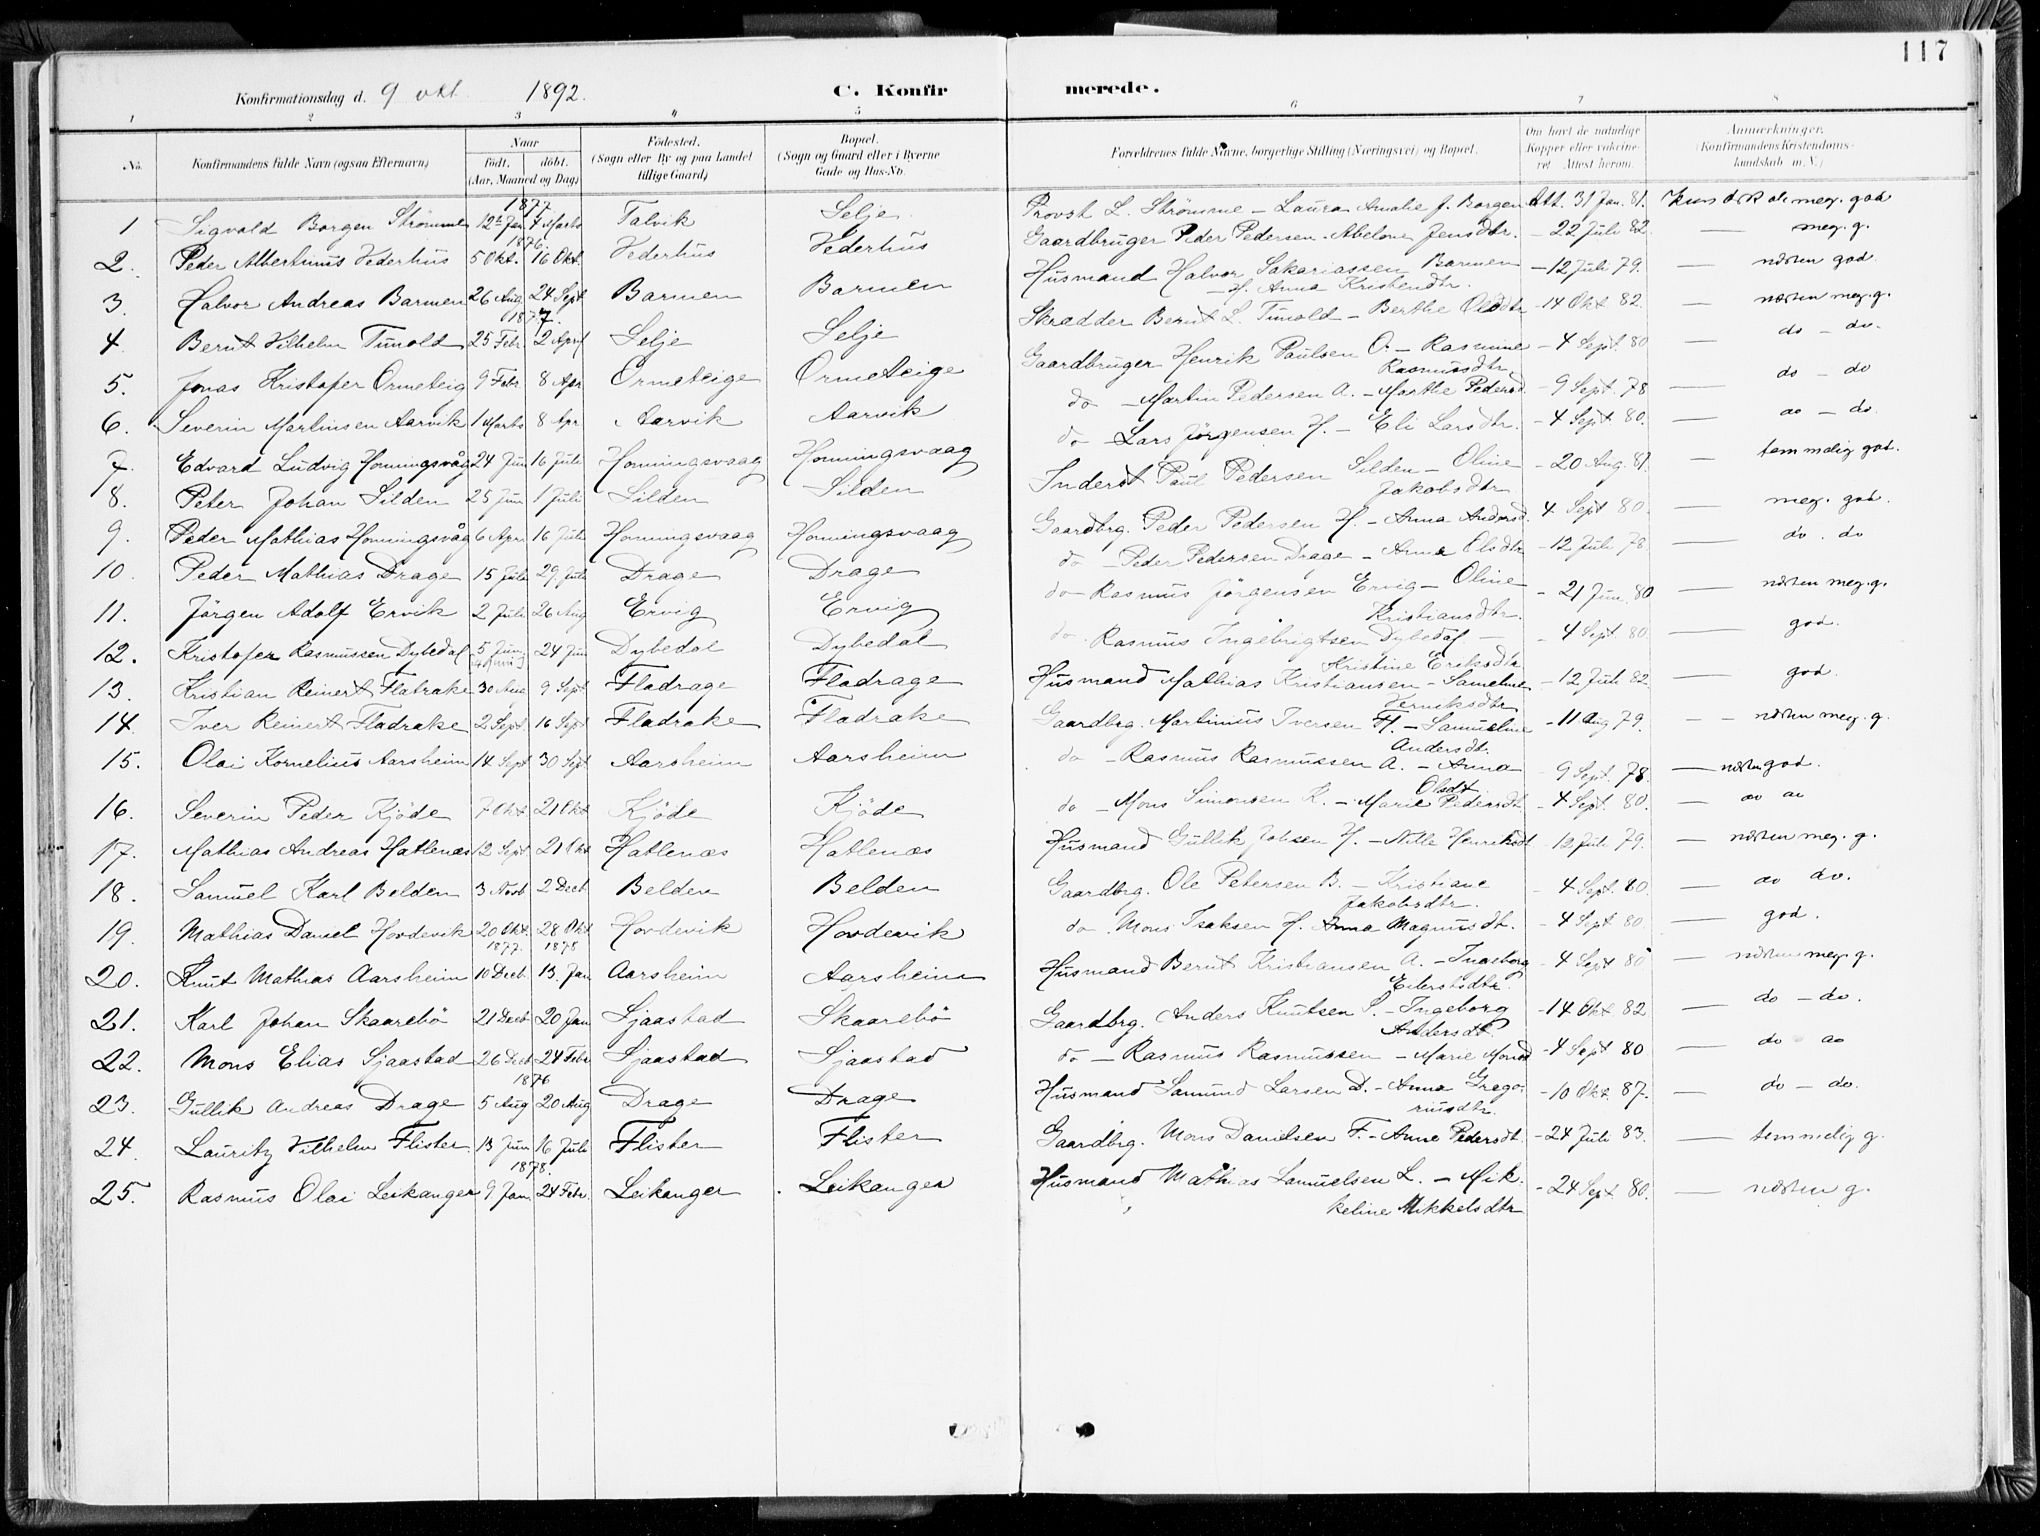 117
Konfirmationsdag d. 9 okt. 1892. C. Konfirmerede.
1 2 3 4 5 6 7 8
No. Konfirmandens fulde Navn (ogsaa Efternavn) Naar født, døbt. (Aar, Maaned og Dag) Fødested. (Sogn eller By og paa Landet tillige Gaard) Bopæl. (Sogn og Gaard eller i Byerne Gade og Hus-No. Forældrenes fulde Navne, borgerlige Stilling (Næringsvei) og Bopæl. Om havt de naturlige Kopper eller vakcineret. Attest herom. Anmærkninger. (Konfirmandens Kristendomskundskab m. V.)
1877
1 Sigvald Borgen Strømme 12te Jan 4 Marts Talvik Selje Provst L. Strømme – Laura Amalie f. Borgen Att. 31 Jan. 81. meg. god
1876.
2. Peder Albertinus Hederhus 5 Okt. 16 Okt. Hederhus Hederhus Gaardbruger Peder Pedersen – Abelone Jensdtr. – 22 Juli 82. — meg. g.
3. Halvor Andreas Barmen 26 Aug. 24 Sept Barmen Barmen Husmand Halvor Sakariassen Barmen – Anna Kristendtr. – 12 Juli 79. — næsten god
1877.
4. Bernt Vilhelm Tunold 25 Febr. 2 April Selje Selje Skrædder Bernt L. Tunold – Berthe Olsdtr – 14 Okt 82. — næsten meg. g.
5. Jonas Kristofer Ormeteig 9 Febr 8 Apr Ormeteige Ormeteige Gaardbruger Henrik Paulsen O. – Rasmine Rasmusdtr – 4 Sept. 80 — do – do.
6. Severin Martinsen Aarvik 1 Marts 8 Apr Aarvik Aarvik do – Martin Pedersen A. – Marthe Pedersd. – 9 Sept. 78 — do – do
7. Edvard Ludvig Honningsvåg 24 Jun 16 Juli Honningsvaag Honningsvaag do – Lars Jørgensen H. – Eli Larsdtr. – 4 Sept. 80. — do – do.
8. Peter Johan Silden 25 Jun 1 Juli Silden Silden Inderst Paul Pedersen Silden – Oline Jakobsdtr – 20 Aug. 81. — temmelig god.
9. Peder Mathias Honningsvåg 6 Apr. 16 Juli Honningsvaag Honningsvaag Gaardbrg. Peder Pedersen H. – Anna Andersd. 4 Sept 80. — meg. god.
10. Peder Mathias Drage 15 Juli 29 Juli Drage Drage do – Peder Pedersen Drage – Anna Olsdtr – 12 Juli 78. — do. do
11. Jørgen Adolf Ervik 2 Juli 26 Aug Ervig Ervig do – Rasmus Jørgensen Ervig – Oline Kristiansdtr. – 21 Jun. 80 — næsten meg. g.
12. Kristofer Rasmussen Dybedal 5 Jun. 24 Jun Dybedal Dybedal do. Rasmus Ingebrigtsen Dybedal – Kristine Eriksdtr – 4 Sept. 80. — god.
13. Kristian Reinert Flatrake 30 Aug 9 Sept Fladrage Fladrage Husmand Mathias Kristiansen – Sameline Henriksdtr – 12 Juli 82. — god.
14. Iver Reinert Fladrake 2 Sept. 16 Sept. Fladrake Fladrake Gaardbrg. Martinius Iversen Fl. – Samueline Andersdt. – 11 Aug 79. — næsten meg. g.
15. Olai Kornelius Aarsheim 14 Sept 30 Sept Aarsheim Aarsheim do – Rasmus Rasmussen A. – Anna Olsdt – 9 Sept. 78. — næsten god.
16. Severin Peder Kjøde 7 Okt 21 Okt Kjøde Kjøde do – Mons Simonsen K. – Marie Pedersdt. – 4 Sept. 80. — do do
17. Mathias Andreas Hatlenæs 12 Sept 21 Okt Hatlenæs Hatlenæs Husmand Gullik Johsen H. – Nille Henriksdt – 12 Juli 79. — næsten meg. g.
18. Samuel Karl Belden 3 Novb 2 Decb Belden Belden Gaardbrg. Ole Petersen B. – Kristiane Jakobsdtr. – 4 Sept. 80. — do do.
19. Mathias Daniel Hovdevik 20 Okt. 28 Okt Hovdevik Hovdevik do. Mons Isaksen H. Anna Magnusdt. – 4 Sept 80. — god.
1877. 1878
20. Knut Mathias Aarsheim 10 Decb 13. Jan Aarsheim Aarsheim Husmand Bernt Kristiansen A. – Ingeborg Eilertsdtr. – 4 Sept 80 — næsten meg. g.
21. Karl Johan Skaarebø 21 Decb 20 Jan Sjaastad Skaarebø Gaardbrg. Anders Knutsen S. – Ingeborg Andersdt. – 14 Okt. 82 — do – do.
22. Mons Elias Sjaastad 26 Decb 24 Febr Sjaastad Sjaastad do – Rasmus Rasmussen – Marie Monsd – 4 Sept 80 — do do
1876
23. Gullik Andreas Drage 5 Aug 20 Aug Drage Drage Husmand Samund Larsen D. – Anna Gregoriusdtr. – 10 Okt. 87. — do – do.
24. Lauritz Vilhelm Flister 13 Jun 16 Juli Flister Flister Gaardbrg. Mons Danielsen F. – Anne Pedersdt. – 24 Juli 83. — temmelig g.
1878.
25. Rasmus Olai Leikanger 9 Jan. 24 Febr. Leikanger Leikanger Husmand Mathias Samuelsen L. – Mikkeline Mikkelsdtr – 24 Sept 80. — næsten g.